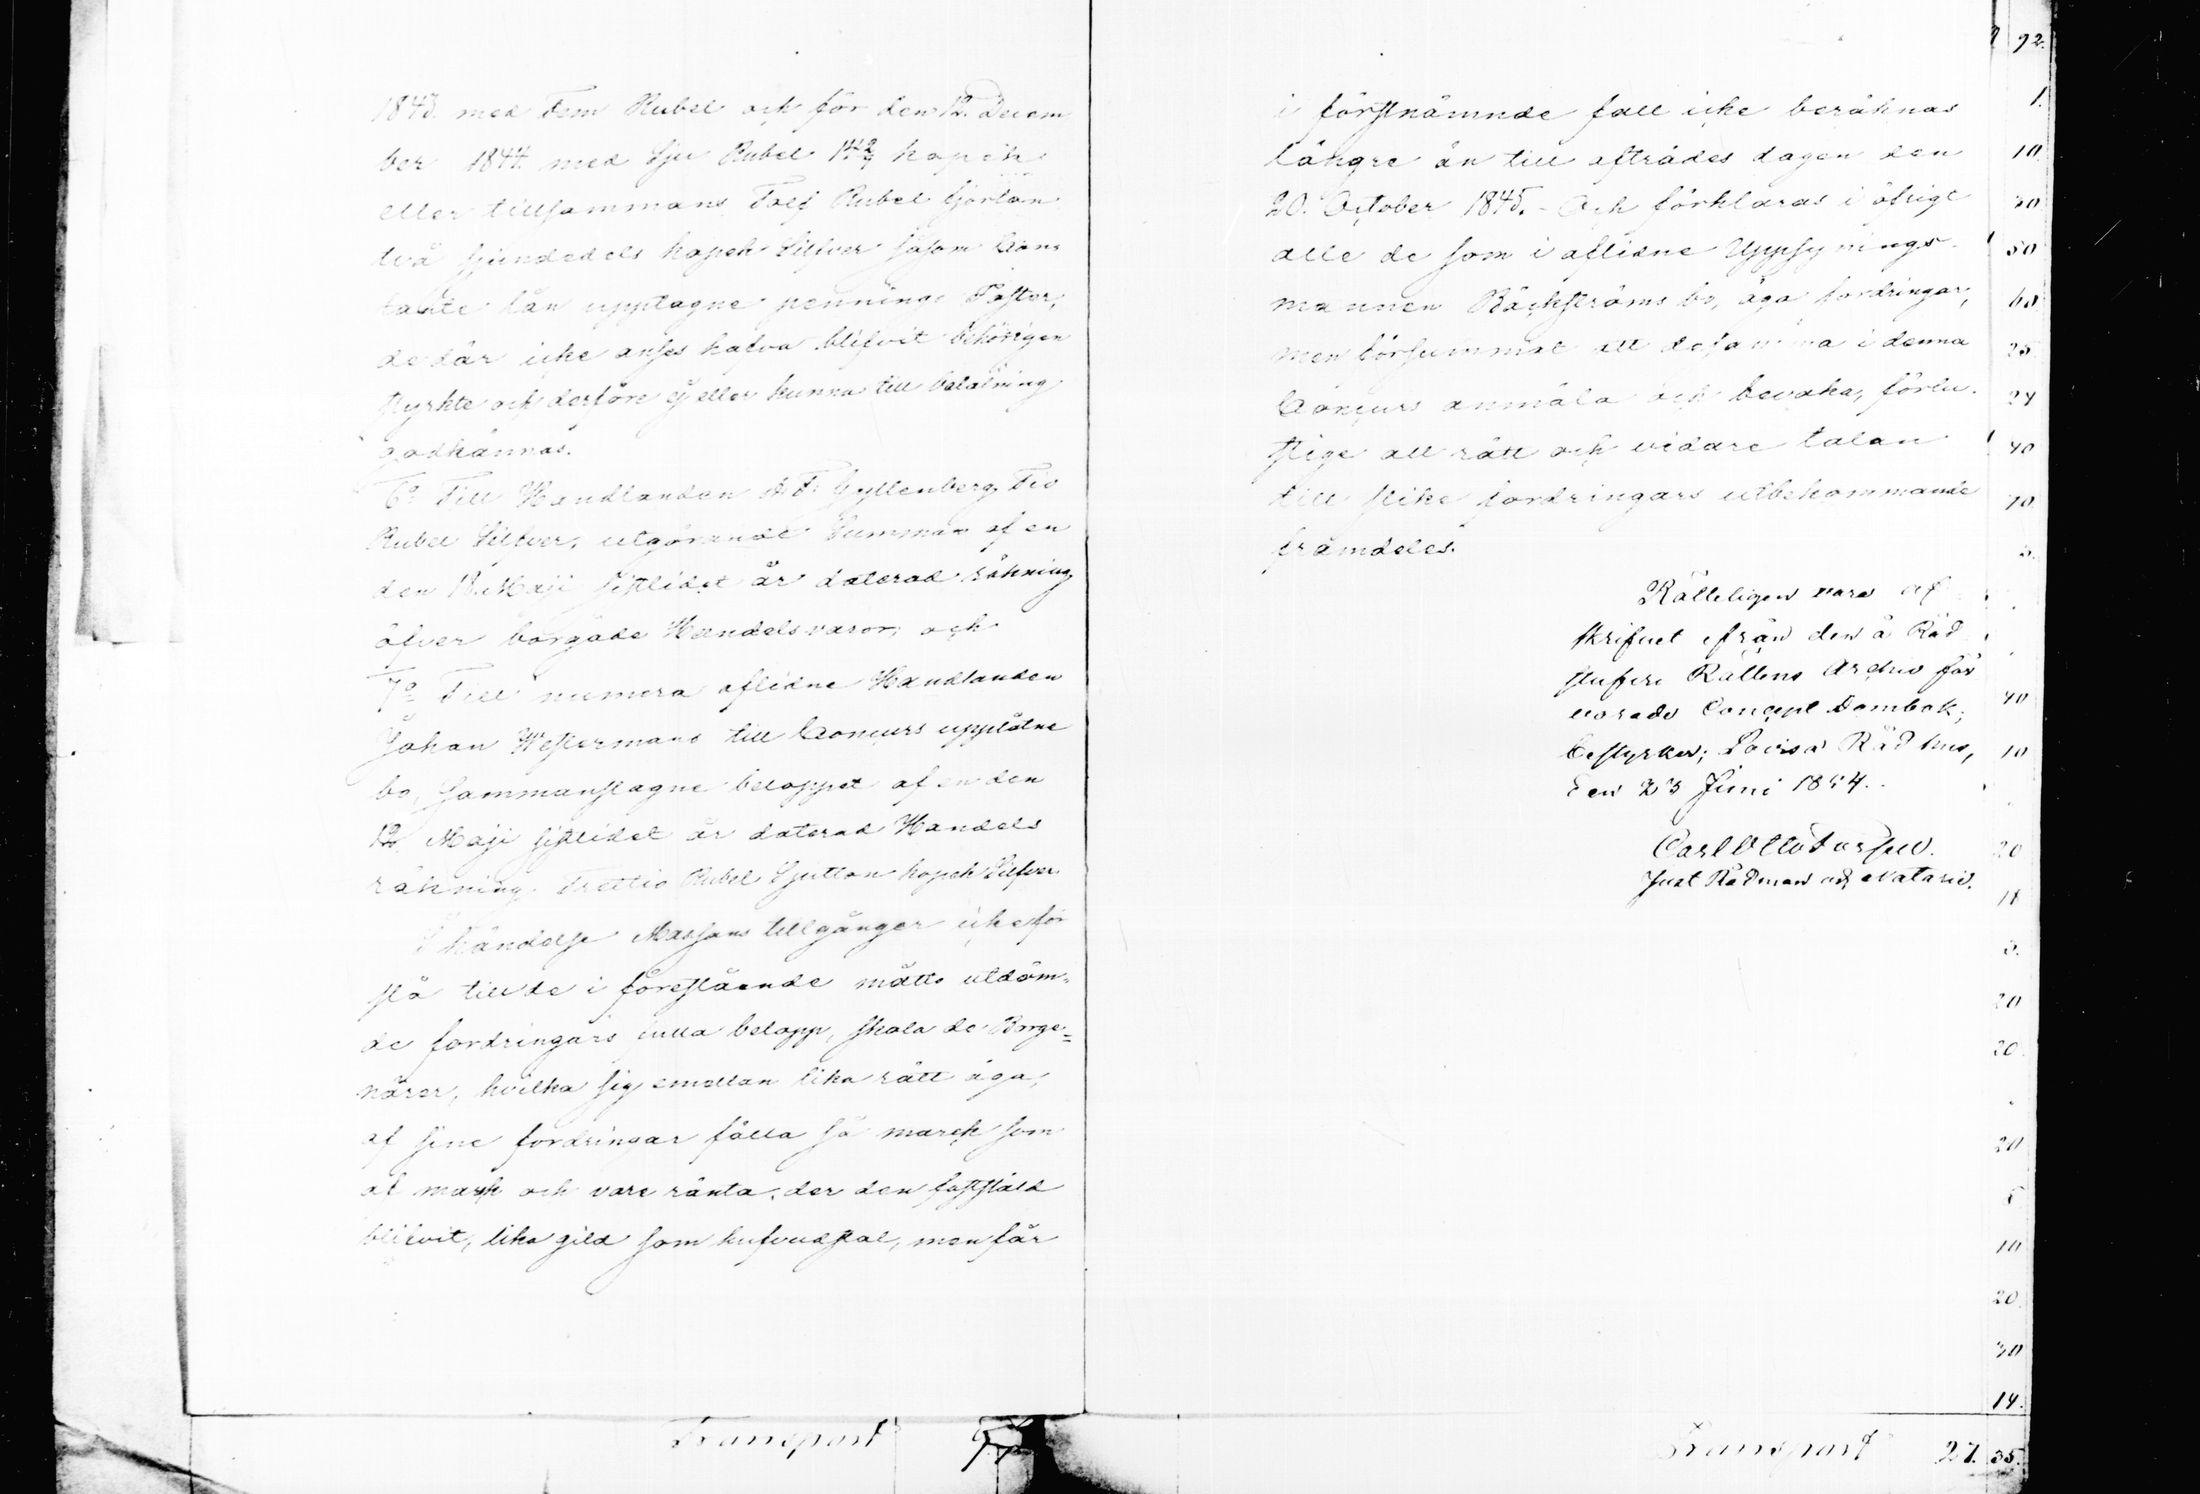 1843. med Fem Rubel och för den 12. Decem
ber 1844 med Sju Rubel 14 2/7 kopek
eller tillsammans Tolf Rubel fjorton
två sjundedels kopek Silfver såsom Con
tante lån upptagne penninge Poster,
de där icke anses hafva blifvit behörigen
styrkte och derföre ej eller kunna till betalning
godkännas.
6o Till Handlanden Gyllenberg, Tio
Rubel Silfver, utgörande Summan af en
den 18. Maji sistlidet år daterad räkning
öfver borgade Handelsvaror; och
7o Till numera aflidne Handlanden
Johan Westermans till Concurs upplåtne
bo, Sammanslagne beloppet af en den
12. Maji sistlidet år daterad Handels
räkning. Trettio Rubel Sjutton kopek Silfver
I händelse Massans tillgångar icke för
slå till de i föreslående måtto utdöm-
de fordringars fulla belopp, skola de Borge=
närer, hvilka sig emellan lika rätt äga,
af sine fordringar fälla så marck som
af marck och vare ränta, der den fastställd
blifvit, lika gild som hufvudstol, men får
i förstnämnde fall icke beräknas
längre än till afträdes dagen den
20. October 1845. - Och förklaras i öfrigt
alle de som i aflidne Uppsynings-
mannen Bäckströms bo, äga fordringar,
men försummat att desamma i denna
Concurs anmäla och bevaka, förlu-
stige all rätt och vidare talan
till slike fordringars utbekommande
främdeles.
Rätteligen vara af
skrifvet ifrån den å Råd
stufvu Rättens Archiv för
varade Concept Dombok,
bestyrker; Lovisa Rådhus,
den 23 Juni 1854.
Carl Otto
Just Rådman och Notarie.
92.
1.
10
30
50
60
25
24
40
70
5.
40
10
20
18
3.
20
20.
20
5
10
20
30
14.
Transport
Transport 27. 35.